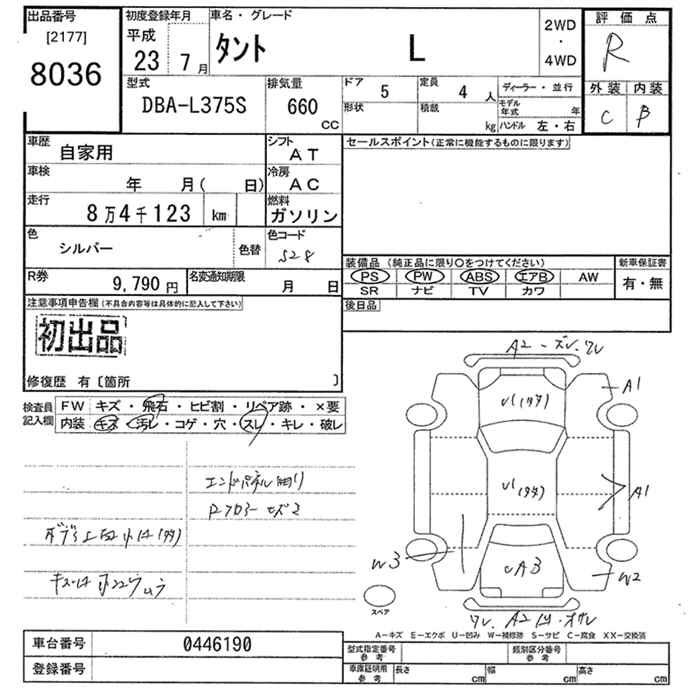 出品番号
[2177]
8036
初度登録年月
平成
23 7月
車名・グレード
タント L
2WD
・
4WD
評価点
R
外装 内装
C B
型式
DBA-L375S
排気量
660 CC
ドア 5
形状
定員 4 人
積載 kg
ディーラー・並行
モデル年式 年
ハンドル 左・右
車歴
自家用
シフト
AT
車検
年 月( 日)
冷房
AC
走行
8万4千123 km
燃料
ガソリン
色
シルバー
色替
色コード
S28
R券
9,790 円
名変通知期限
月 日
セールスポイント(正常に機能するものに限ります)
装備品 (純正品に限り○をつけてください)
PS PW ABS エアB AW
SR ナビ TV カワ
新車保証書
有・無
後日品
注意事項申告欄 (不具合内容等は具体的に記入して下さい)
初出品
修復歴 有〔箇所 〕
検査員記入欄
FW キズ・飛石・ヒビ割・リペア跡・×要
内装 キズ・汚レ・コゲ・穴・スレ・キレ・破レ
エンドパネル曲り
A2-ズレ、ワレ
A1
U1
U1
A1
W3
UA3
W2
スペア
ワレ、A2
A-キズ E-エクボ U-凹み W-補修跡 S-サビ C-腐食 XX-交換済
車台番号 0446190
登録番号
型式指定番号参考
類別区分番号参考
車庫証明用参考
長さ cm
幅 cm
高さ cm